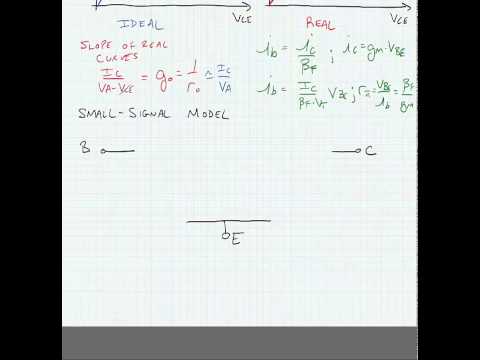 IDEAL VCE REAL VCE
SLOPE OF REAL CURVES
IC / (VA-VCE) = go = 1/ro ≈ IC/VA
ib = ic/βF ; ic = gm·VBE
ib = IC/(βF·VT) VBE ; rπ = VBE/ib = βF/gm
SMALL-SIGNAL MODEL
B C
E